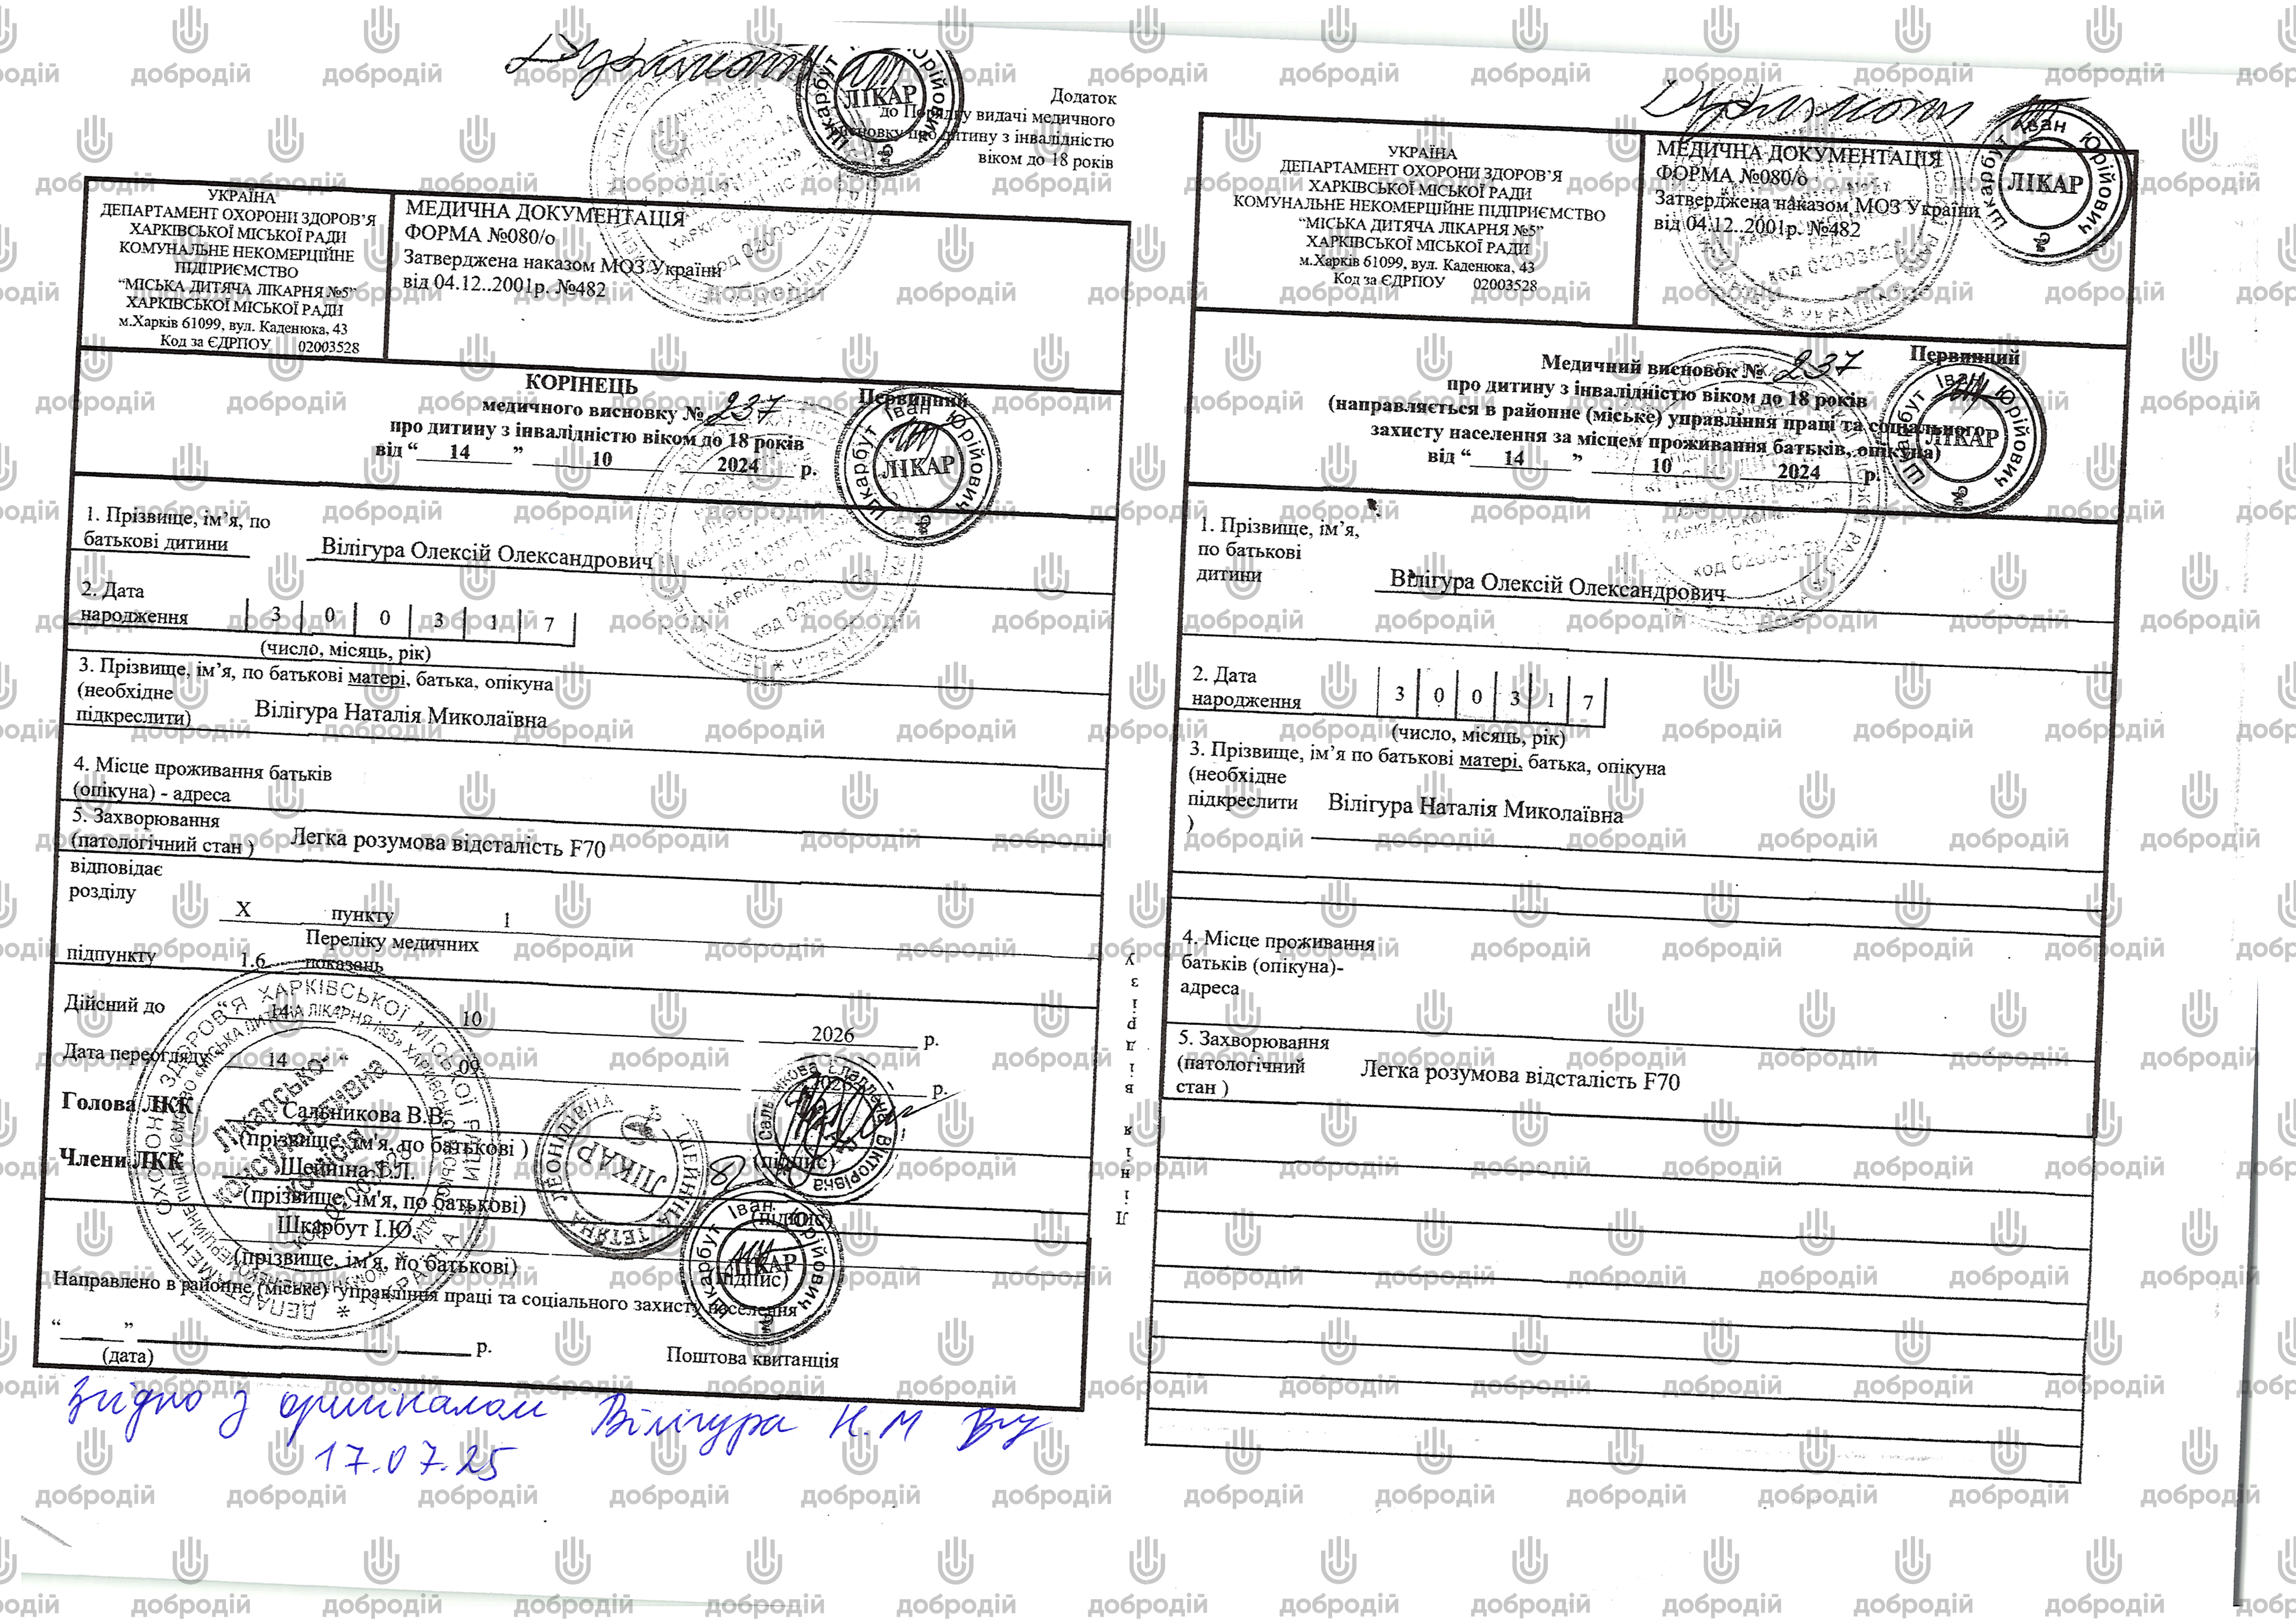 Дублікат
Додаток
до Порядку видачі медичного
висновку про дитину з інвалідністю
віком до 18 років
УКРАЇНА
ДЕПАРТАМЕНТ ОХОРОНИ ЗДОРОВ’Я
ХАРКІВСЬКОЇ МІСЬКОЇ РАДИ
КОМУНАЛЬНЕ НЕКОМЕРЦІЙНЕ
ПІДПРИЄМСТВО
“МІСЬКА ДИТЯЧА ЛІКАРНЯ №5”
ХАРКІВСЬКОЇ МІСЬКОЇ РАДИ
м.Харків 61099, вул. Каденюка, 43
Код за ЄДРПОУ 02003528
МЕДИЧНА ДОКУМЕНТАЦІЯ
ФОРМА №080/о
Затверджена наказом МОЗ України
від 04.12..2001р. №482
КОРІНЕЦЬ
Первинний
медичного висновку № 237
про дитину з інвалідністю віком до 18 років
від “ 14 ” 10 2024 р.
1. Прізвище, ім’я, по
батькові дитини Вілігура Олексій Олександрович
2. Дата
народження 3 0 0 3 1 7
(число, місяць, рік)
3. Прізвище, ім’я, по батькові матері, батька, опікуна
(необхідне
підкреслити) Вілігура Наталія Миколаївна
4. Місце проживання батьків
(опікуна) - адреса
5. Захворювання
(патологічний стан ) Легка розумова відсталість F70
відповідає
розділу
X пункту 1
Переліку медичних
підпункту 1.6 показань
Дійсний до “ 14 10 2026 р.
Дата переогляду “ 14 “ 09 2026 р.
Голова ЛКК Сальникова В.В.
(прізвище, ім'я, по батькові ) (підпис)
Члени ЛКК Шейніна Т.Л.
(прізвище, ім'я, по батькові) (підпис)
Шкарбут І.Ю.
(прізвище, ім'я, по батькові) (підпис)
Направлено в районне (міське) управління праці та соціального захисту населення
“ ” р.
(дата) Поштова квитанція
Згідно з оригіналом Вілігура Н.М
17.07.25
Лінія відрізу
Дублікат
УКРАЇНА
ДЕПАРТАМЕНТ ОХОРОНИ ЗДОРОВ’Я
ХАРКІВСЬКОЇ МІСЬКОЇ РАДИ
КОМУНАЛЬНЕ НЕКОМЕРЦІЙНЕ ПІДПРИЄМСТВО
“МІСЬКА ДИТЯЧА ЛІКАРНЯ №5”
ХАРКІВСЬКОЇ МІСЬКОЇ РАДИ
м.Харків 61099, вул. Каденюка, 43
Код за ЄДРПОУ 02003528
МЕДИЧНА ДОКУМЕНТАЦІЯ
ФОРМА №080/о
Затверджена наказом МОЗ України
від 04.12..2001р. №482
Первинний
Медичний висновок № 237
про дитину з інвалідністю віком до 18 років
(направляється в районне (міське) управління праці та соціального
захисту населення за місцем проживання батьків, опікуна)
від “ 14 ” 10 2024 р.
1. Прізвище, ім’я,
по батькові
дитини Вілігура Олексій Олександрович
2. Дата
народження 3 0 0 3 1 7
(число, місяць, рік)
3. Прізвище, ім’я по батькові матері, батька, опікуна
(необхідне
підкреслити Вілігура Наталія Миколаївна
)
4. Місце проживання
батьків (опікуна)-
адреса
5. Захворювання
(патологічний Легка розумова відсталість F70
стан )
Шкарбут Іван Юрійович
ЛІКАР
Сальникова Владлена Вікторівна
ШЕЙНІНА ТЕТЯНА ЛЕОНІДІВНА
ЛІКАР
Лікарсько-
консультативна
комісія
добродій